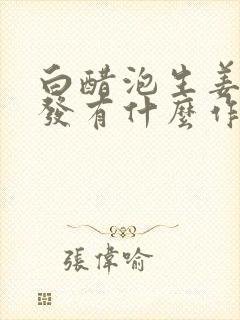 白醋泡生姜
發有什麼作
張偉喻